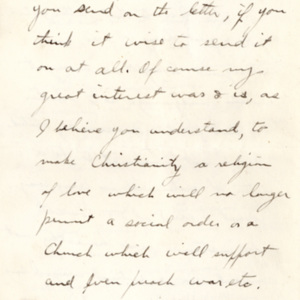 you send on the letter, if you
think it wise to send it
on at all. Of course my
great interest was & is, as
I believe you understand, to
make Christianity a religion
of love which will no longer
permit a social order or a
Church which will support
and even preach war, etc.